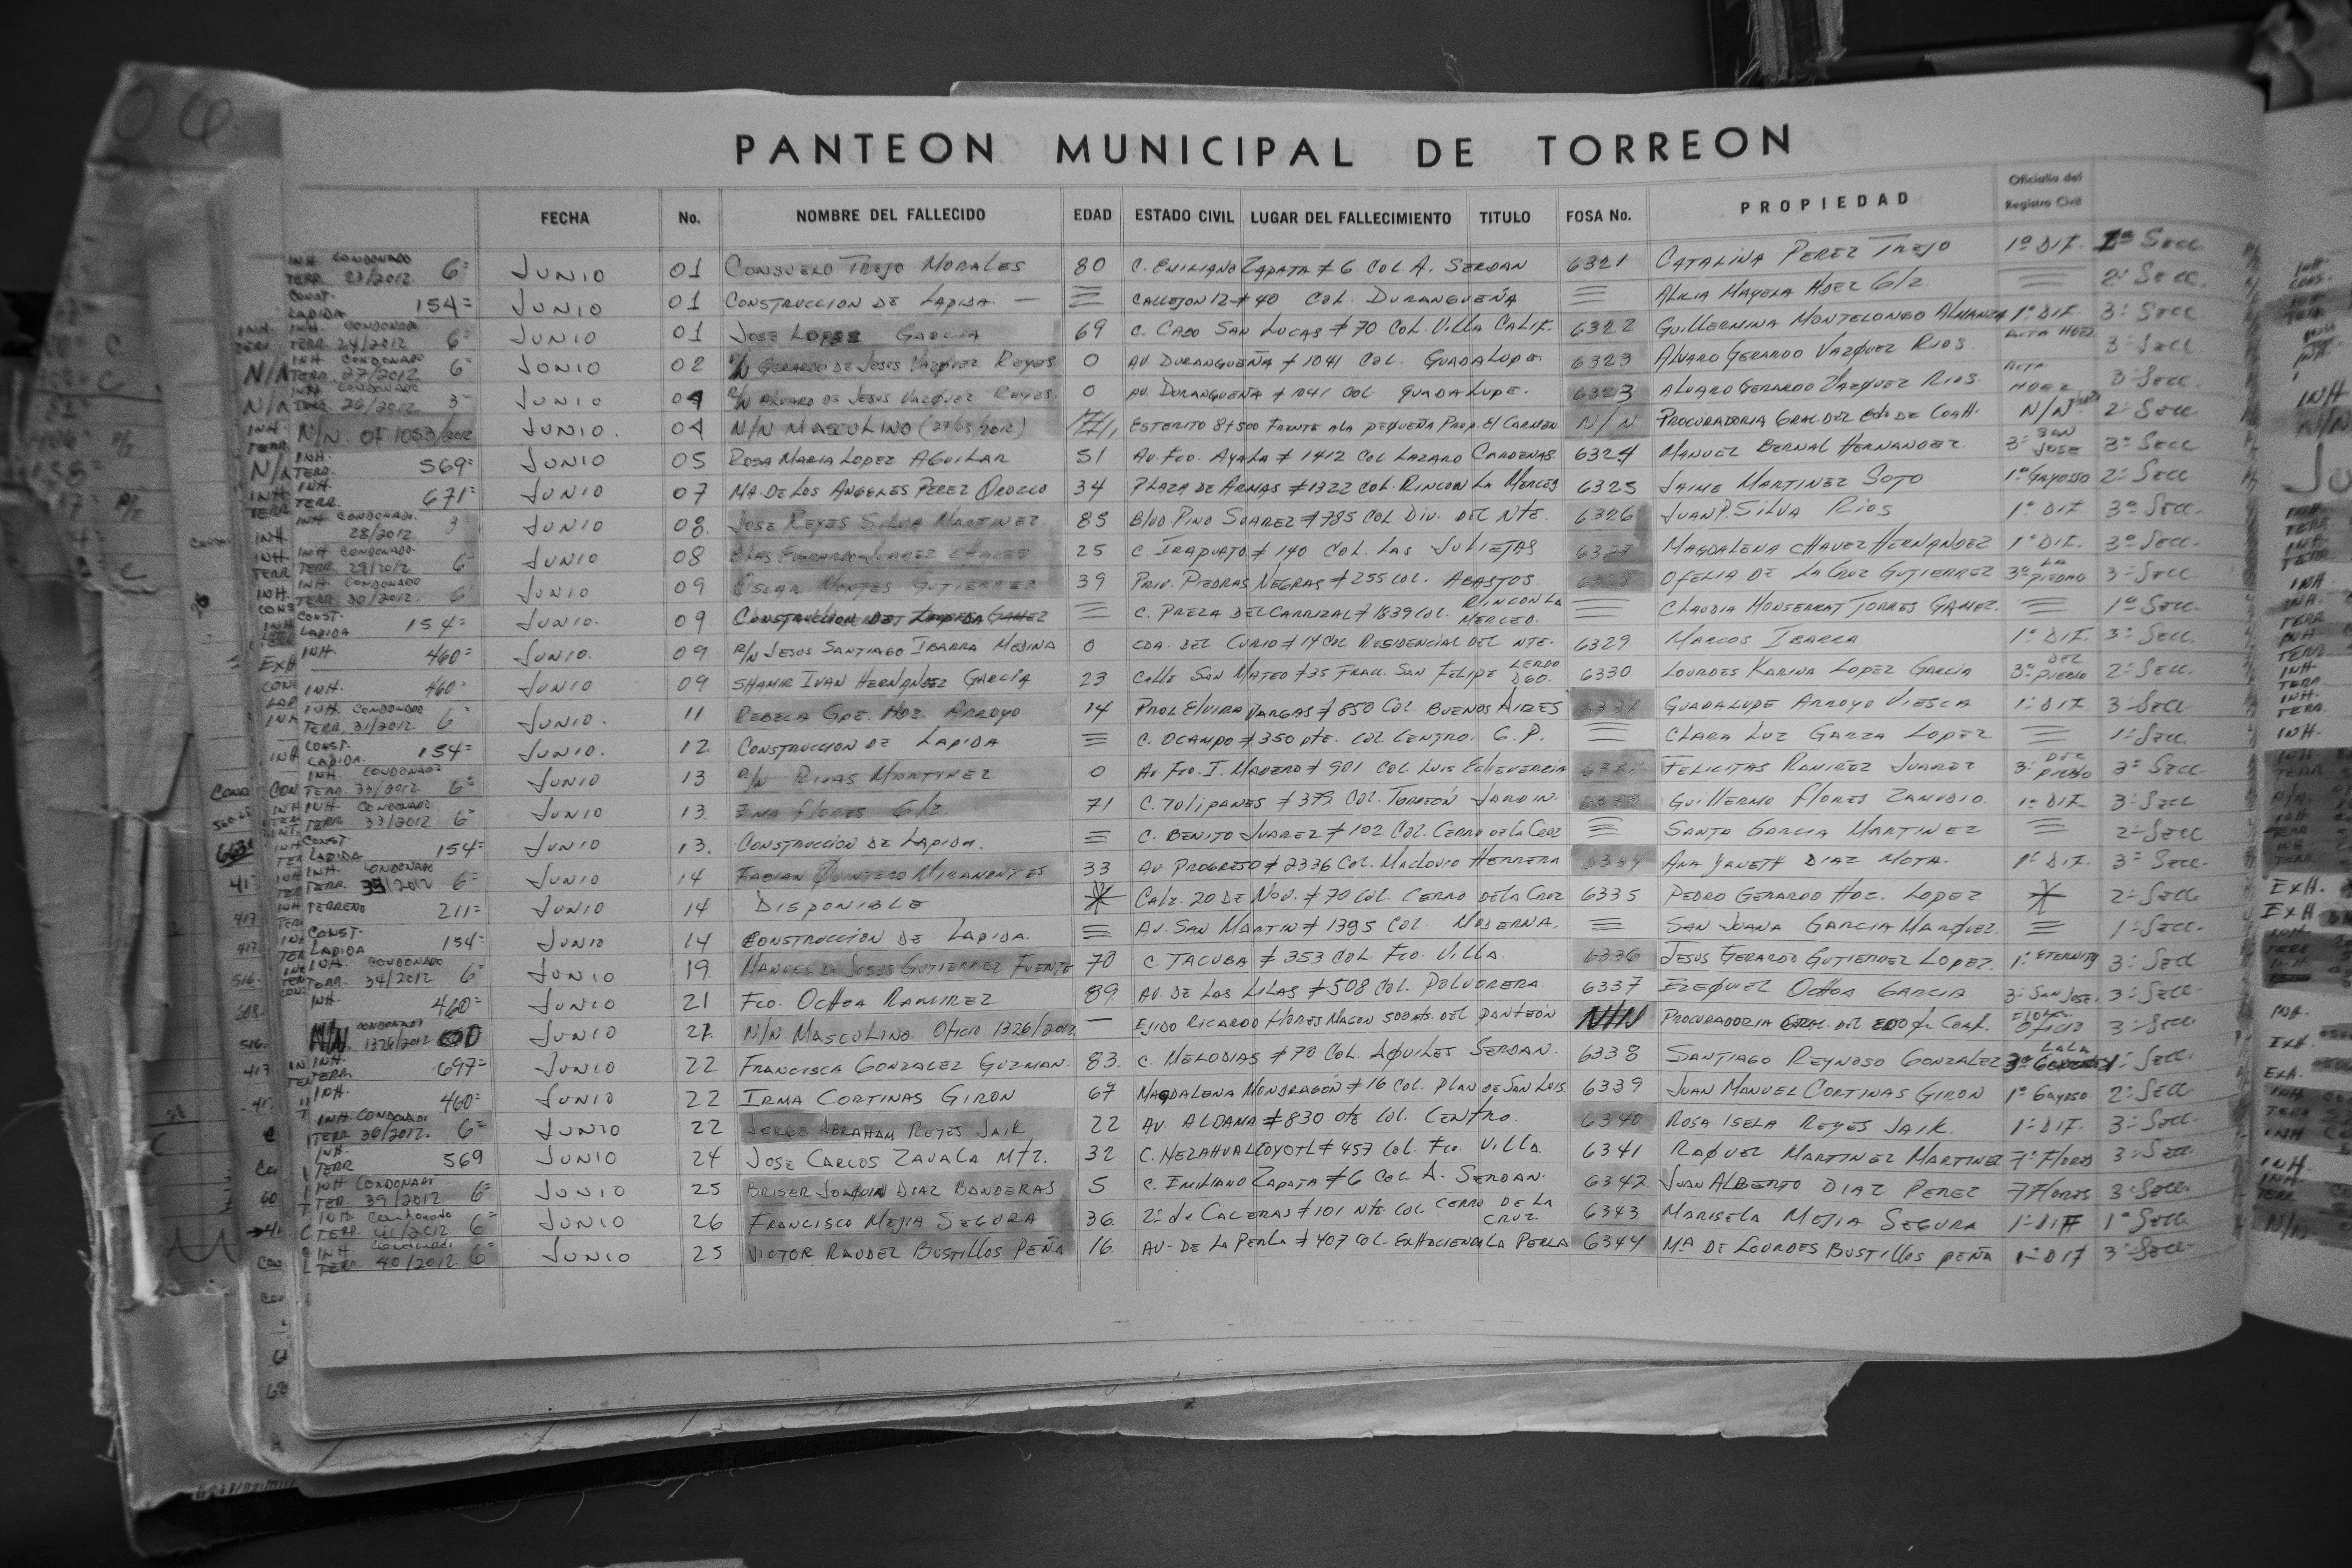 PANTEON MUNICIPAL DE TORREON
FECHA No. NOMBRE DEL FALLECIDO EDAD ESTADO CIVIL LUGAR DEL FALLECIMIENTO TITULO FOSA No. PROPIEDAD Oficialia del Registro Civil
INH. CONDONADO TERR. 23/2012 6= JUNIO 01 CONSUELO TREJO MORALES 80 C. EMILIANO ZAPATA # 6 COL A. SERDAN 6321 CATALINA PEREZ TREJO 1º DIF. 1ª SECC
CONST. LAPIDA 154= JUNIO 01 CONSTRUCCION DE LAPIDA. — CALLEJON 12 # 40 COL. DURANGUEÑA ALICIA MAYELA HDEZ G/z 2ª SECC.
INH. CONDONADO TERR. 24/2012 6= JUNIO 01 JOSE LOPEZ GARCIA 69 C. CABO SAN LUCAS # 70 COL. VILLA CALIF. 6322 GUILLERMINA MONTELONGO ALMANZA 1º DIF. 3ª SECC
INH. CONDONADO TERR. 27/2012 6= JUNIO 02 R/N GERARDO DE JESUS VAZQUEZ REYES 0 AV. DURANGUEÑA # 1041 COL. GUADALUPE 6323 ALVARO GERARDO VAZQUEZ RIOS. ACTA HDEZ 3ª SECC
INH CONDONADO TERR. 26/2012 3= JUNIO 04 R/N ALVARO DE JESUS VAZQUEZ REYES. 0 AV. DURANGUEÑA # 1041 COL GUADALUPE. 6323 ALVARO GERARDO VAZQUEZ RIOS. ACTA HDEZ 3ª SECC
N/N. OF 1053/2012 JUNIO. 04 N/N MASCULINO (27/05/2012) ESTERITO 8+500 FRENTE A LA PEQUEÑA PROP. El CARMEN N/N PROCURADORIA GRAL DEL EDO DE COAH. N/N 2ª SECC
INH. TERR. 569= JUNIO 05 ROSA MARIA LOPEZ AGUILAR 51 AV. FCO. AYALA # 1412 COL LAZARO CARDENAS. 6324 MANUEL BERNAL HERNANDEZ 3ª SAN JOSE 3ª SECC
INH. TERR. 671= JUNIO 07 MA. DE LOS ANGELES PEREZ OROZCO 34 PLAZA DE ARMAS # 1322 COL. RINCON LA MERCED 6325 JAIME MARTINEZ SOTO 1º GAYOSSO 2ª SECC
INH CONDONADO. 28/2012. 3 JUNIO 08. JOSE REYES SILVA MARTINEZ. 85 BLVD. PINO SUAREZ # 785 COL DIV. DEL NTE. 6326 JUAN P. SILVA RIOS 1º DIF 3ª SECC.
INH CONDONADO. TERR 29/2012 6= JUNIO 08 25 C. IRAPUATO # 140 COL. LAS JULIETAS MAGDALENA CHAVEZ HERNANDEZ 1º DIF. 3ª SECC.
INH. CONDONADO TERR 30/2012. 6 JUNIO 09 OSCAR MONTES GUTIERREZ 39 PRIV. PIEDRAS NEGRAS # 255 COL. ABASTOS. OFELIA DE LA CRUZ GUTIERREZ 3ª LA PIEDAD 3ª SECC
CONST. LAPIDA 154= JUNIO. 09 CONSTRUCCION DE LAPIDA C. PREZA DEL CARRIZAL # 1839 COL. RINCON LA MERCED. CLAUDIA MONSERRAT TORRES GAMEZ. 1ª SECC.
INH. 460= JUNIO. 09 R/N JESUS SANTIAGO IBARRA MEDINA 0 CDA. DEL CURIO # 14 COL RESIDENCIAL DEL NTE. 6329 MARCOS IBARRA 1º DIF. 3ª SECC.
INH. 460= JUNIO 09 SHAMIR IVAN HERNANDEZ GARCIA 23 CALLE SAN MATEO # 35 FRACC. SAN FELIPE LERDO DGO. 6330 LOURDES KARINA LOPEZ GARCIA 3ª DEL PUEBLO 2ª SECC.
INH CONDONADO TERR. 31/2012. 6= JUNIO. 11 REBECA GPE. HDZ. ARROYO 14 PROL ELVIRA VARGAS # 850 COL. BUENOS AIRES 6331 GUADALUPE ARROYO VIESCA 1º DIF. 3ª SECC
CONST. LAPIDA. 154= JUNIO. 12 CONSTRUCCION DE LAPIDA C. OCAMPO # 350 pte. COL. CENTRO. G.P. CLARA LUZ GARZA LOPEZ 1ª SECC.
INH. CONDONADO TERR. 6= JUNIO 13 R/N RIVAS MARTINEZ 0 AV. FCO. I. MADERO # 901 COL LUIS ECHEVERRIA FELICITAS RAMIREZ JUAREZ 3ª DEL PUEBLO 3ª SECC
INH. CONDONADO TERR 33/2012 6= JUNIO 13. FLORES G/z. 71 C. TULIPANES # 379 COL. TORREÓN JARDIN. 6333 GUILLERMO FLORES ZAMUDIO. 1º DIF 3ª SECC
CONST LAPIDA 154= JUNIO 13. CONSTRUCCION DE LAPIDA. C. BENITO JUAREZ # 102 COL. CERRO DE LA CRUZ SANTA GARCIA MARTINEZ 2ª SECC
INH. CONDONADO TERR. 6= JUNIO 14 FABIAN QUINTERO MIRAMONTES 33 AV PROGRESO # 2336 COL. MACLOVIO HERRERA 6334 ANA YANETH DIAZ MOTA. 1º DIF. 3ª SECC.
TERRENO 211= JUNIO 14 DISPONIBLE CALZ. 20 DE NOV. # 70 COL. CERRO DE LA CRUZ 6335 PEDRO GERARDO HDZ. LOPEZ 2ª SECC
CONST. LAPIDA 154= JUNIO 14 CONSTRUCCION DE LAPIDA. AV. SAN MARTIN # 1395 COL. MODERNA. SAN JUANA GARCIA MARQUEZ 1ª SECC.
INH. CONDONADO TERR. 34/2012 6= JUNIO 19. MANUEL DE JESUS GUTIERREZ FUENTE 70 C. TACUBA # 353 COL. FCO. VILLA. 6336 JESUS GERARDO GUTIERREZ LOPEZ. 1ª ETERNITY 3ª SECC
INH. 460= JUNIO 21 FCO. OCHOA RAMIREZ 89. AV. DE LAS LILAS # 508 COL. POLVORERA 6337 EZEQUIEL OCHOA GARCIA 3ª SAN JOSE 3ª SECC
N/N CONDONADO 1326/2012 JUNIO 21. N/N MASCULINO. OFICIO 1326/2012. — EJIDO RICARDO FLORES MAGON 500 mts. DEL PANTEÓN N/N PROCURADORIA GRAL. DEL EDO OFICIO 3ª SECC
INH. TERR. 697= JUNIO 22 FRANCISCA GONZALEZ GUZMAN. 83. C. MELODIAS # 70 COL. AQUILES SERDAN. 6338 SANTIAGO REYNOSO GONZALEZ LALA SECC
INH. 460= JUNIO 22 IRMA CORTINAS GIRON 67 MAGDALENA MONDRAGÓN # 16 COL. PLAN DE SAN LUIS. 6339 JUAN MANUEL CORTINAS GIRON 1º Gayosso 2ª SECC
INH CONDONADO TERR 36/2012. 6= JUNIO 22 JORGE ABRAHAM REYES JAIK 22 AV. ALDAMA # 830 ote COL. CENTRO. 6340 ROSA ISELA REYES JAIK. 1º DIF. 3ª SECC.
INH. TERR 569 JUNIO 24 JOSE CARLOS ZAVALA Mtz. 32 C. NEZAHUALCOYOTL # 457 COL. FCO. VILLA. 6341 RAQUEL MARTINEZ MARTINEZ 7ª FLORES 3ª SECC
INH CONDONADO TER. 39/2012 6= JUNIO 25 BRISER JOAQUIN DIAZ BANDERAS 5 C. EMILIANO ZAPATA # 6 COL A. SERDAN. 6342 JUAN ALBERTO DIAZ PEREZ 7 FLORES 3ª SECC.
INH. Condonado TERR. 41/2012. 6= JUNIO 26 FRANCISCO MEJIA SEGURA 36. 2ª de CALERAS # 101 Nte COL CERRO DE LA CRUZ. 6343 MARISELA MEJIA SEGURA 1º DIF 1ª SECC
INH. Condonado TERR. 40/2012. 6= JUNIO 25 VICTOR RAUDEL BUSTILLOS PEÑA 16. AV. DE LA PERLA # 407 COL. EXHACIENDA LA PERLA 6344 Mª DE LOURDES BUSTILLOS PEÑA 1º DIF 3ª SECC